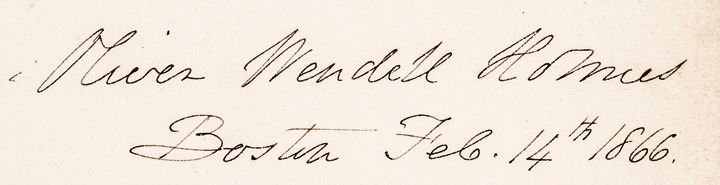 Oliver Wendell Holmes
Boston Feb. 14th 1866.